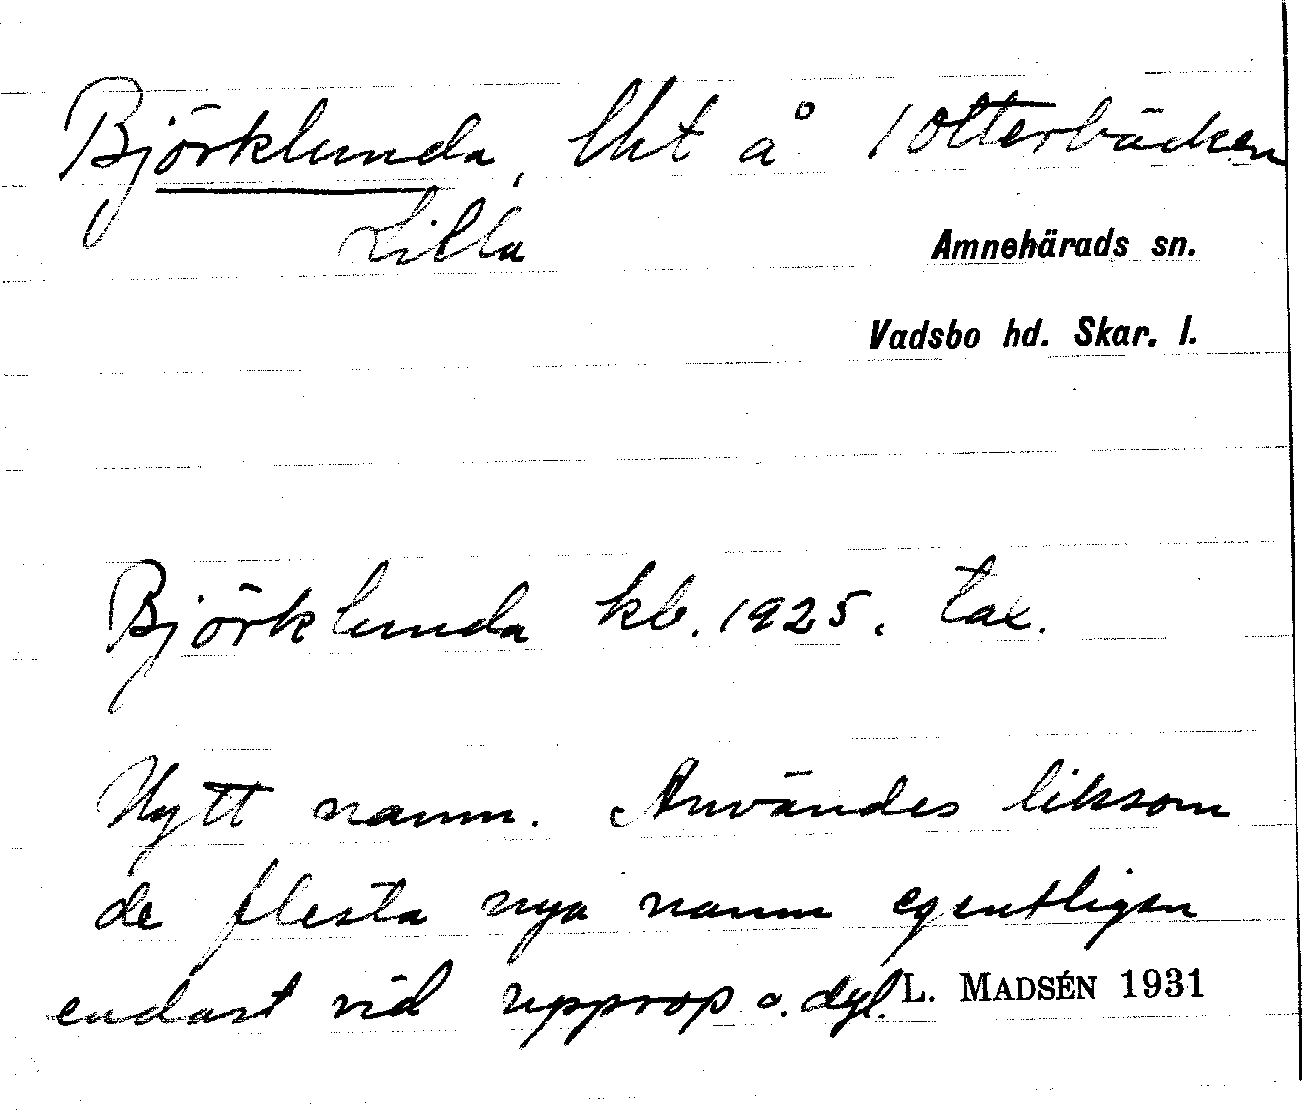 Björklunda, lht å 1 Otterbäcken
Lilla
Amnehärads sn.
Vadsbo hd. Skar. l.
Björklunda kb. 1925. tax.
Nytt namn. Användes liksom
de flesta nya namn egentligen
endast vid upprop o. dyl.
L. MADSÉN 1931